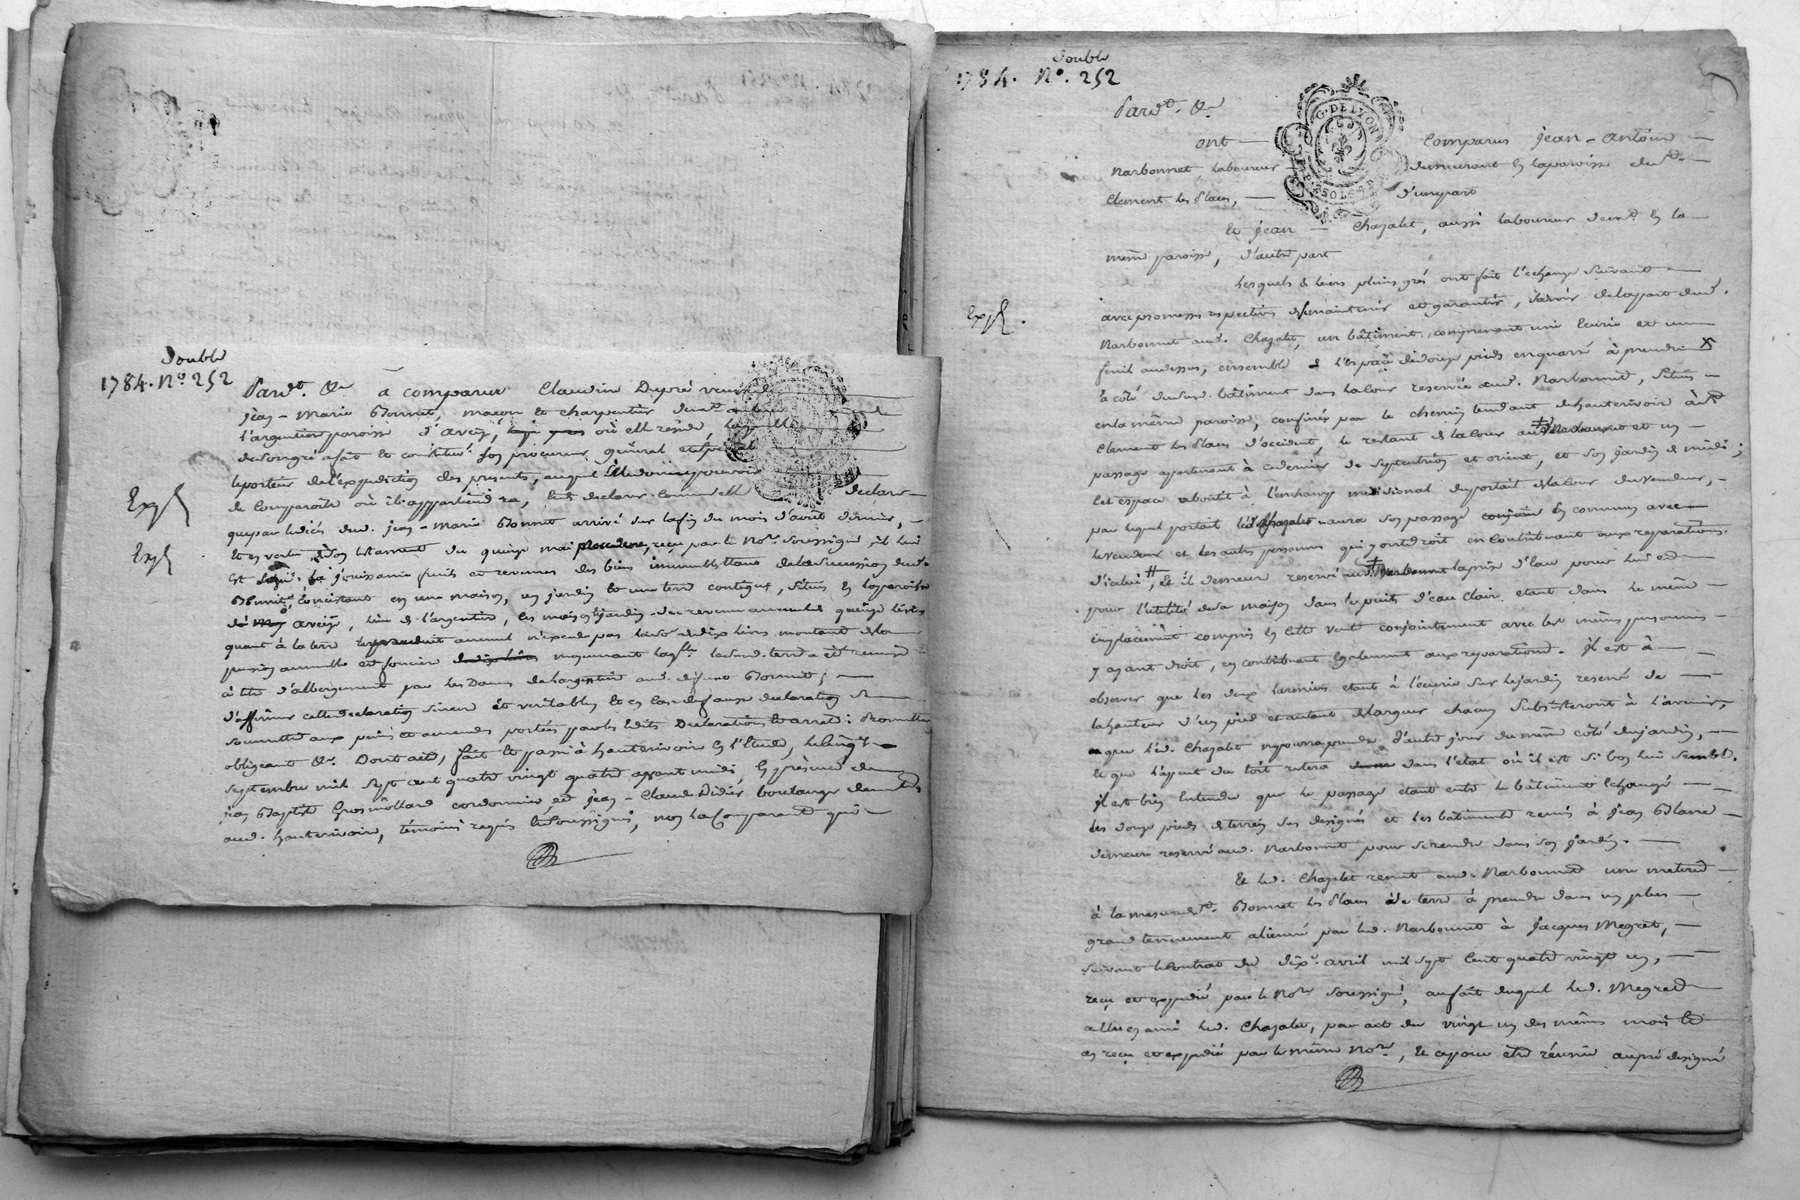 Double
1784. N.º 252
Pard.t &.a a comparue Claudine Dupré veuve
Jean-Marie Bonnet, maçon et charpentier
l'argentière paroisse d'aveize, où elle réside
de son gré a fait et constitué son procureur général et spécial
le porteur de l'expédition des présentes, auquel elle donne pouvoir
de comparoitre où il appartiendra,
Exp
declare
que par le décès dud. Jean-Marie Bonnet arrivé sur la fin du mois d'août dernier,
Exp
et en vertu de son testament du quinze mai reçu par le No.re soussigné, il lui
est jouissance fruits et revenus des biens immeubles de la succession dud.
Bonnet, consistant en une maison, un jardin et une terre contigue, situés en la paroisse
aveize, lieu de l'argentière, les maison et jardin de revenu annuel de quinze livres
quant à la terre le produit annuel n'excede pas la so de dix livres montant de la
pension annuelle et fonciere moyennant laq.le lad. terre a été remise
à titre d'albergement par les Dames de largentiere aud. défunt Bonnet;
d'affirmer cette declaration sincere et veritable, et en cas de fausse declaration se
soumettre aux peines et amendes portées par les Edits Declarations et arrets: Promettant
obligeant &.a Dont acte, fait et passé à hauterivoire en l'Etude, le vingt
septembre mil sept cent quatre vingt quatre apres midi, En présence de
Jean Baptiste Grosmollard cordonnier, et Jean-Claude Didier boulanger dem.ts
aud. hauterivoire, témoins requis et soussignés, non la Comparante que
Double
1784. N.º 252
Pard.t &.a
ont comparus Jean-Antoine
Narbonnet, laboureur demeurant en la paroisse de S.t
Clement les Places, d'une part
G. DE LYON
Et Jean Chazalet, aussi laboureur dem.t en la
même paroisse, d'autre part
Lesquels de leurs pleins grés ont fait l'echange suivant
Exp.
avec promesses respectives de maintenir et garantir, savoir de la part dud.
Narbonnet aud. Chazalet, un bâtiment comprenant une Ecurie et un
fenil audessus, ensemble l'espace de douze pieds en quarré à prendre
à côté dud. bâtiment dans la cour reservée aud. Narbonnet, situés
en la même paroisse, confinés par le chemin tendant de hauterivoire à S.t
Clement les Places d'occident, le restant de la cour aud. Narbonnet et un
passage apartenant à ce dernier de septentrion et orient, et son jardin de midi;
cet espace aboutit à l'enchamp meridional du portail de la cour du vendeur,
par lequel portail led. Chazalet aura son passage en commun avec
le vendeur et les autres personnes qui y ont droit en contribuant aux reparations
d'icelui, Et il demeure reservé aud. Narbonnet la prise d'eau pour lui et
pour l'utilité de sa maison dans le puits d'eau clair etant dans le même
emplacement compris en cette vente conjointement avec les mêmes personnes
y ayant droit, en contribuant egalement aux reparations. Il est à
observer que les deux larmiers etant à l'écurie sur le jardin reservé de
la hauteur d'un pied et autant de largeur chacun subsisteront à l'avenir,
que led. Chazalet ne pourra prendre d'autre jour du même côté du jardin,
et que l'égout du toit restera dans l'etat où il est si bon lui semble.
Il est bien Entendu que le passage etant entre le bâtiment echangé
les douze pieds de terrein sus designés et les batiments remis à Jean Blanc
demeure reservé aud. Narbonnet pour se rendre dans son jardin.
Et led. Chazalet remet aud. Narbonnet une meterée
à la mesure de S.t Bonnet les Places de terre à prendre dans un plus
grand tennement aliené par led. Narbonnet à Jacques Megret,
suivant le contrat du dix avril mil sept cent quatre vingt un,
reçu et expedié par le No.re soussigné, au fait duquel led. Megret
a élu en ami led. Chazalet, par acte du vingt un des mêmes mois
an reçu et expedié par le même No.re, Et ce pour etre réunie au pré designé